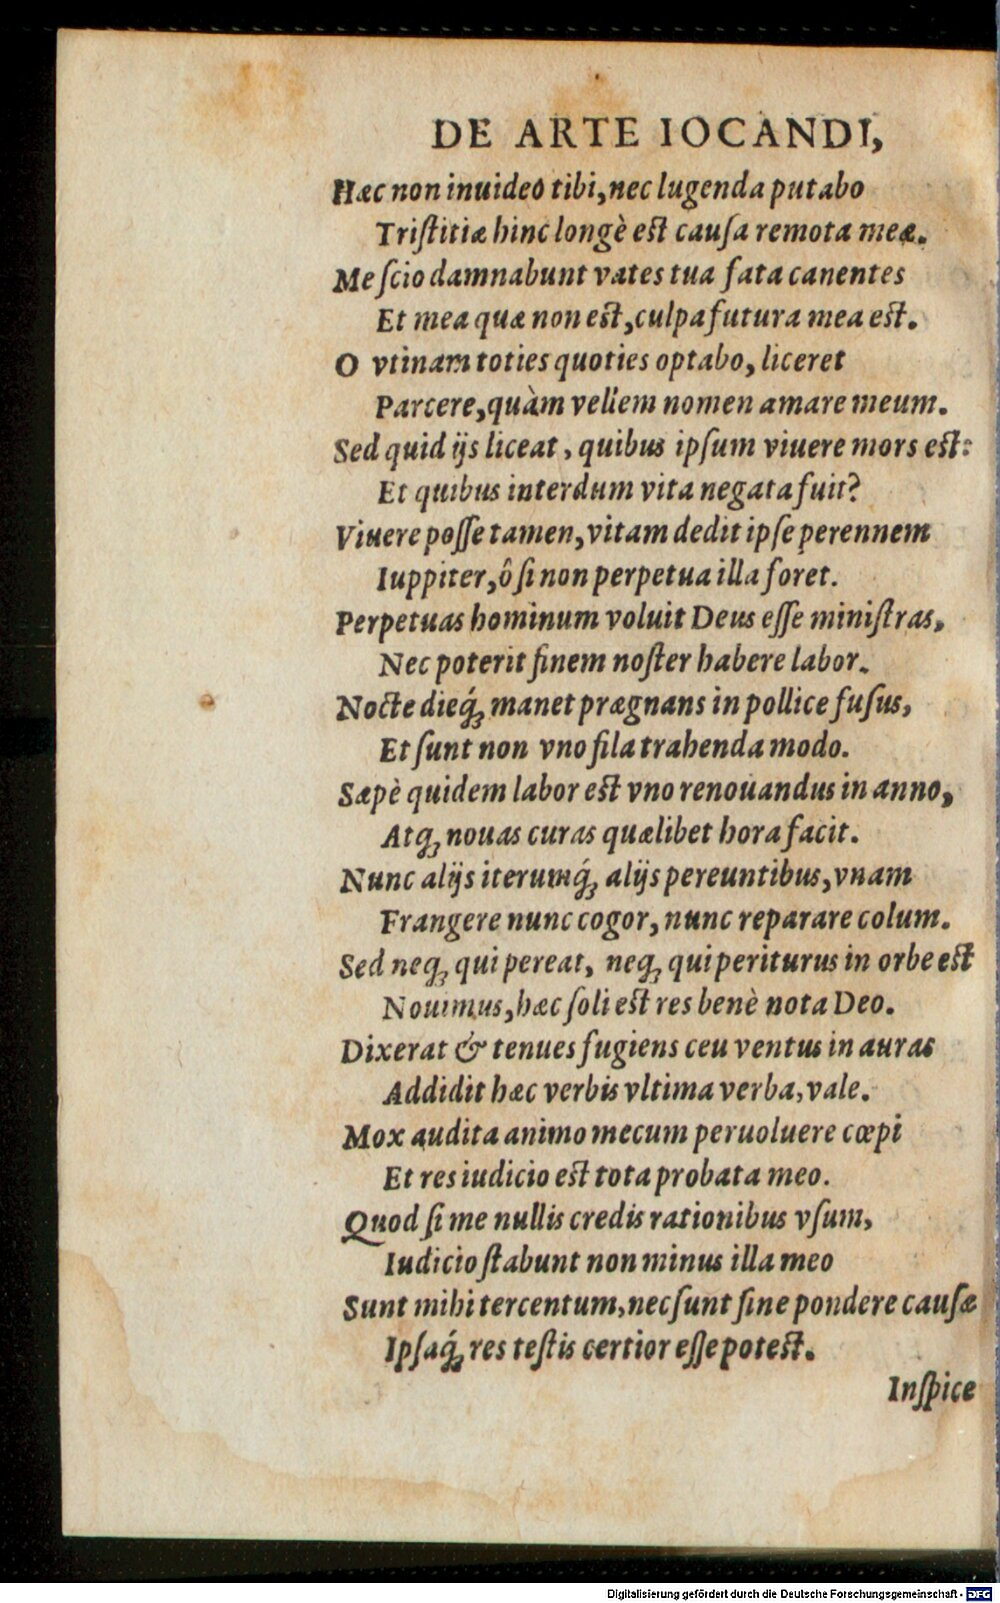 DE ARTE IOCANDI,
Hæc non inuideo tibi, nec lugenda putabo
Triſtitiæ hinc longè est cauſa remota meæ.
Me ſcio damnabunt vates tua fata canentes
Et mea quæ non est, culpa futura mea est.
O vtinam toties quoties optabo, liceret
Parcere, quàm vellem nomen amare meum.
Sed quid ijs liceat, quibus ipſum viuere mors est:
Et quibus interdum vita negata fuit?
Viuere poſſe tamen, vitam dedit ipſe perennem
Iuppiter, ô ſi non perpetua illa foret.
Perpetuas hominum voluit Deus eſſe miniſtras,
Nec poterit finem noſter habere labor.
Nocte dieq́; manet prægnans in pollice fuſus,
Et ſunt non vno fila trahenda modo.
Sæpè quidem labor est vno renouandus in anno,
Atq; nouas curas quælibet hora facit.
Nunc alijs iterumq́; alijs pereuntibus, vnam
Frangere nunc cogor, nunc reparare colum.
Sed neq; qui pereat, neq; qui periturus in orbe est
Nouimus, hæc ſoli est res benè nota Deo.
Dixerat & tenues fugiens ceu ventus in auras
Addidit hæc verbis vltima verba, vale.
Mox audita animo mecum peruoluere cœpi
Et res iudicio est tota probata meo.
Quod ſi me nullis credis rationibus vſum,
Iudicio ſtabunt non minus illa meo
Sunt mihi tercentum, nec ſunt ſine pondere cauſæ
Ipſaq́; res teſtis certior eſſe potest.
Inſpice
Digitalisierung gefördert durch die Deutsche Forschungsgemeinschaft - DFG